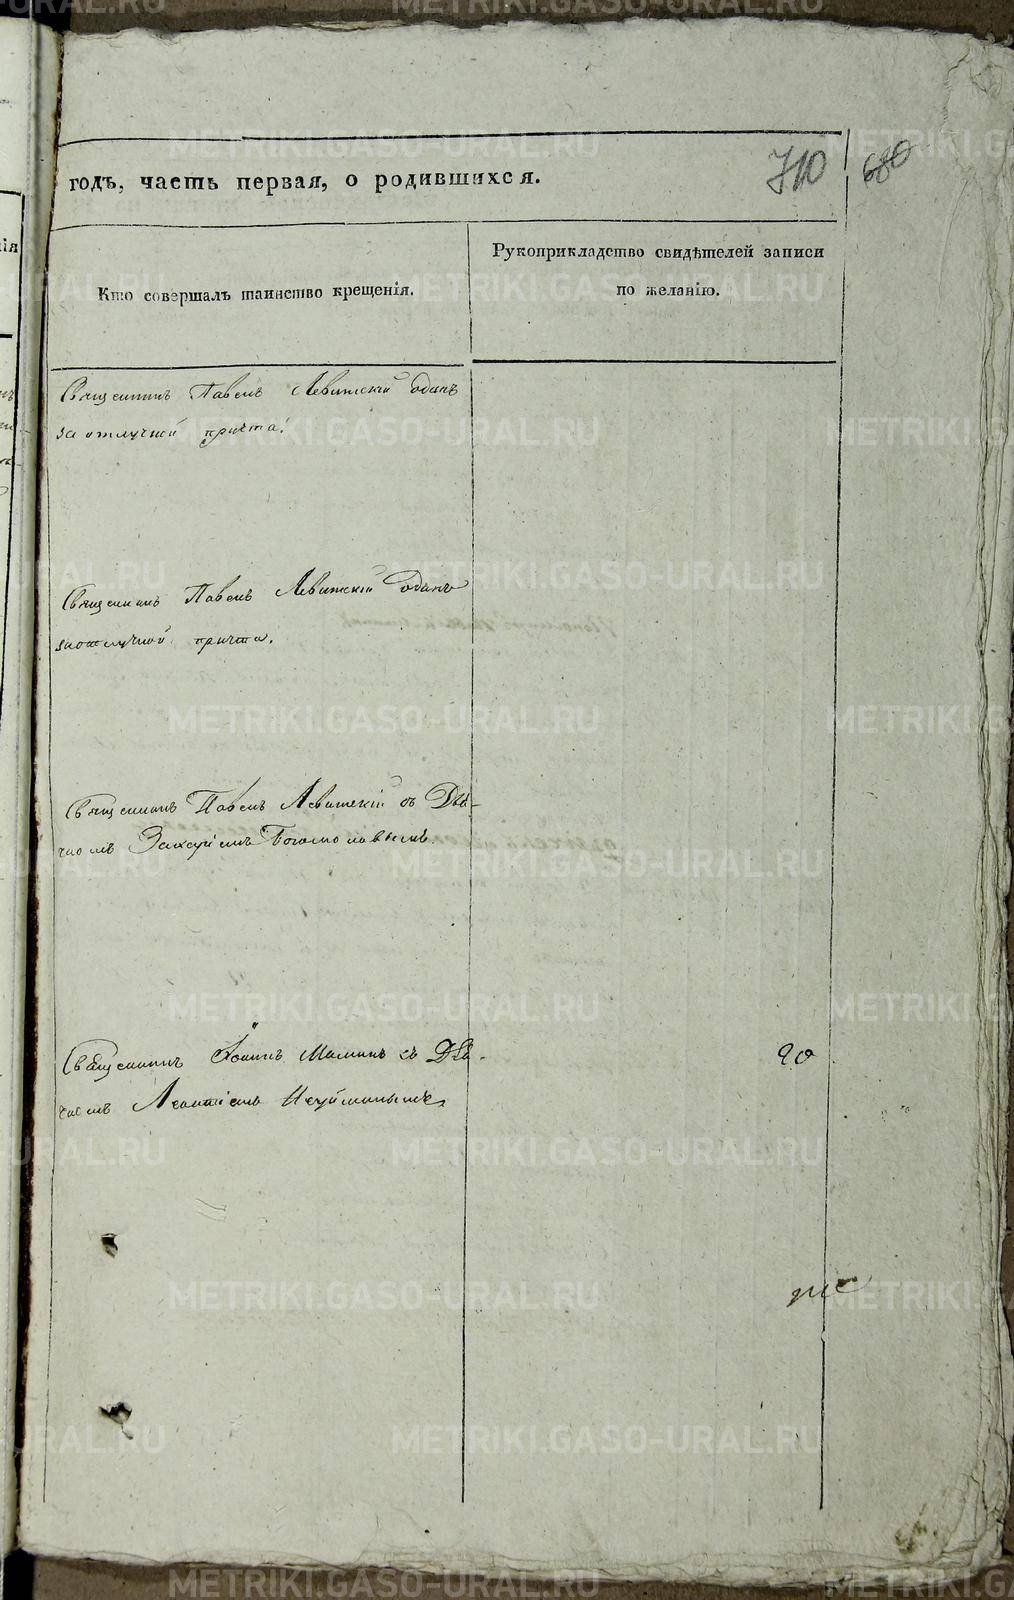 годъ, часть первая, о родившихся.
710
680
Кто совершалъ таинство крещенія.
Рукоприкладство свидѣтелей записи
по желанію.
Священникъ Павелъ Левитскій одинъ
за отлучкой причта.
Священникъ Павелъ Левитскій одинъ
за отлучкой причта.
Священникъ Павелъ Левитскій съ Дья-
чкомъ Захаріемъ Богомоловымъ.
Священникъ Іоаннъ Малминъ съ Дья-
чкомъ Леонтіемъ Неуйминымъ.
METRIKI.GASO-URAL.RU